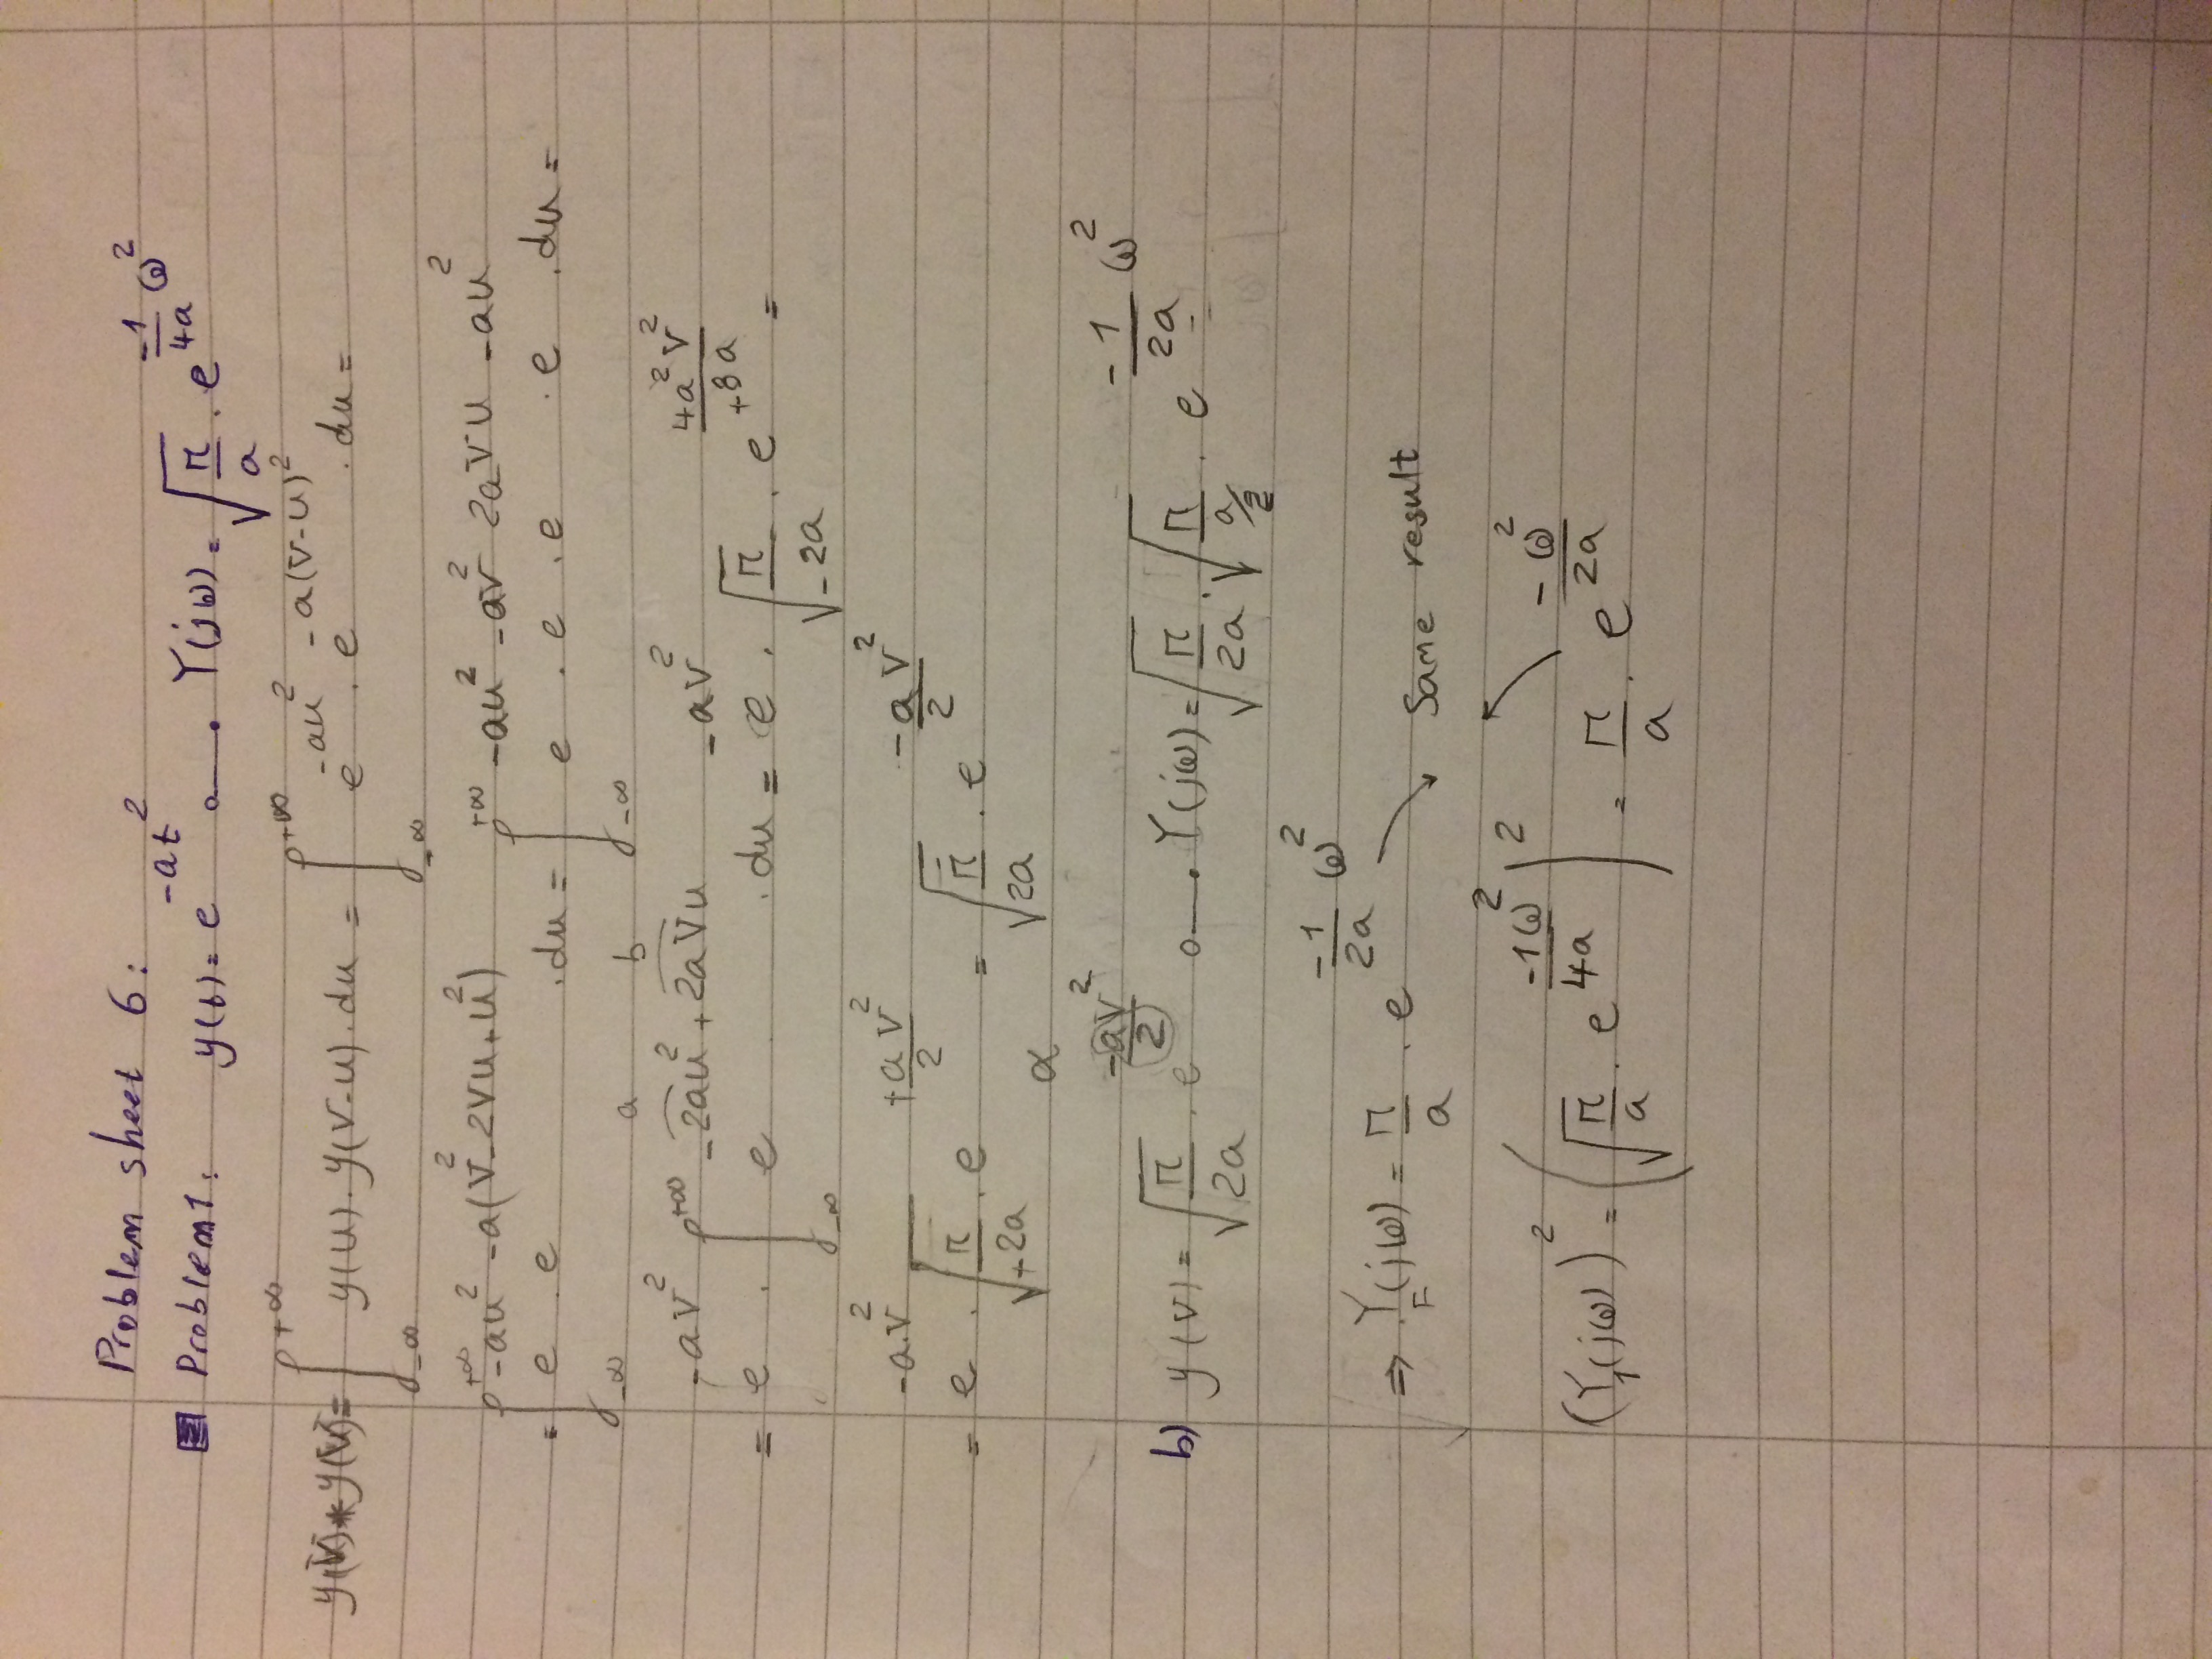 Problem sheet 6:
Problem 1: y(t) = e^{-at^2} o—• Y(jω) = √(π/a) · e^{-1/4a ω^2}
y(V) * y(V) = ∫_{-∞}^{+∞} y(u) · y(V-u) · du = ∫_{-∞}^{+∞} e^{-au^2} · e^{-a(V-u)^2} · du =
= ∫_{-∞}^{+∞} e^{-au^2} · e^{-a(V^2-2Vu+u^2)} · du = ∫_{-∞}^{+∞} e^{-au^2} · e^{-aV^2} · e^{2aVu} · e^{-au^2} · du =
a b
= e^{-aV^2} · ∫_{-∞}^{+∞} e^{-2au^2+2aVu} · du = e^{-aV^2} · √(π/-2a) · e^{4a^2V^2/+8a} =
= e^{-a·V^2} · √(π/+2a) · e^{+aV^2/2} = √(π/2a) · e^{-aV^2/2}
α
b) y(V) = √(π/2a) · e^{-aV^2/2} o—• Y(jω) = √(π/2a) · √(π/a/2) · e^{-1/2a ω^2}
⇒ Y_F(jω) = π/a · e^{-1/2a ω^2}
Same result
(Y_1(jω))^2 = (√(π/a) · e^{-1ω^2/4a})^2 = π/a · e^{-ω^2/2a}